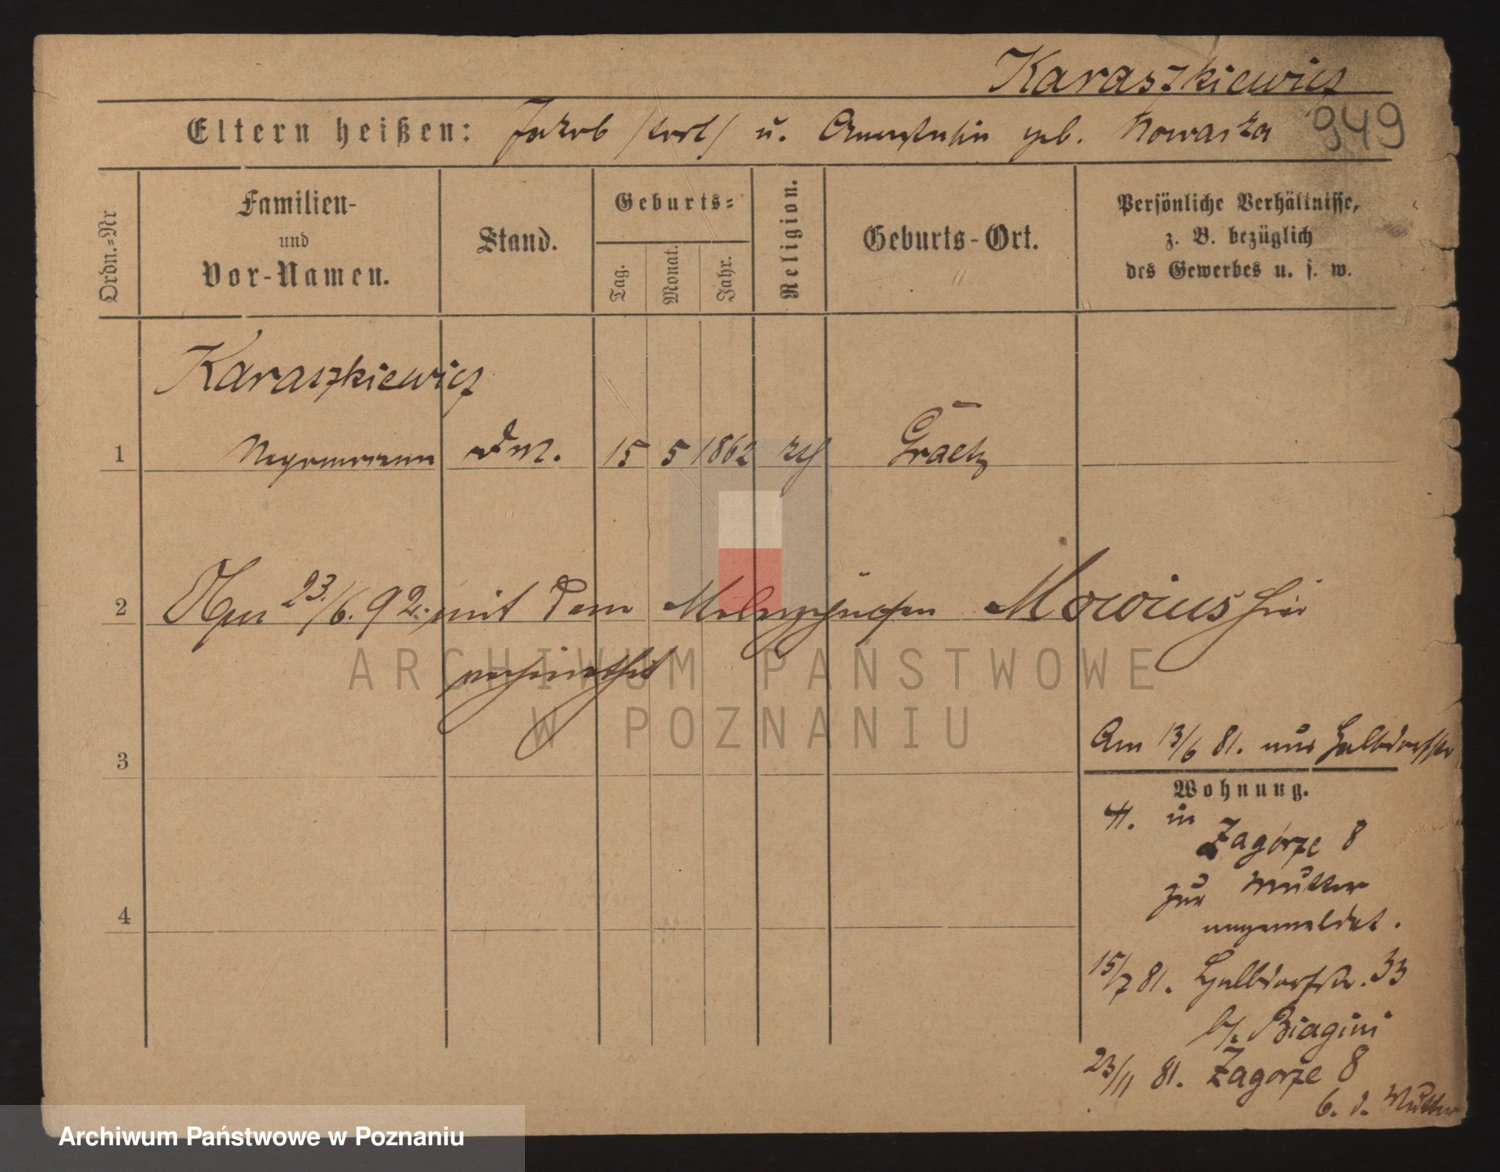 Karaszkiewicz
Eltern heißen: Jakob /tod/ u. Augustin geb. Nowacka 949
Ordn.=Nr
Familien-
und
Vor-Namen.
Stand.
Geburts=
Tag.
Monat.
Jahr.
Religion.
Geburts-Ort.
Persönliche Verhältnisse,
z. B. bezüglich
des Gewerbes u. s. w.
Karaszkiewicz
1 15 5 1862 Graetz
2 23/6.92. mit dem Mowius hier
verheirathet
ARCHIWUM PAŃSTWOWE
W POZNANIU
3
Am 13/6 81. aus Halbdorfstr
Wohnung.
4. in Zagórze 8
zur Mutter
umgemeldet.
4
15/7 81. Halbdorfstr. 33
b/. Biagini
23/11 81. Zagorze 8
b. d. Mutter
Archiwum Państwowe w Poznaniu